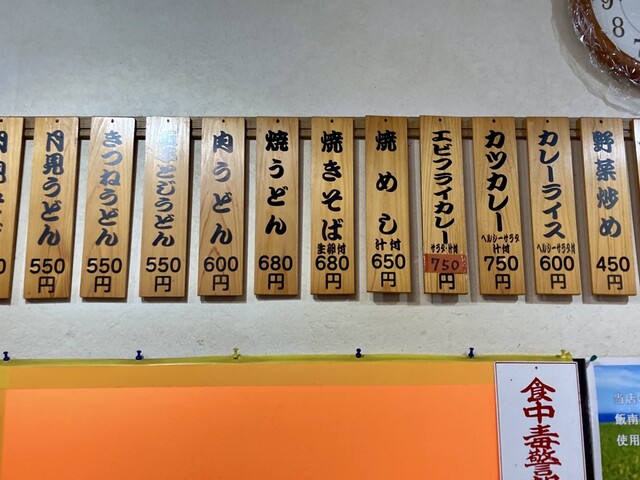 月見うどん
550
円
きつねうどん
550
円
とじうどん
550
円
肉うどん
600
円
焼うどん
680
円
焼きそば
生卵付
680
円
焼めし
汁付
650
円
エビフライカレー
サラダ・汁付
750
円
カツカレー
ヘルシーサラダ
汁付
750
円
カレーライス
ヘルシーサラダ付
600
円
野菜炒め
450
円
9
8
7
食中毒警
当店
飯南
使用